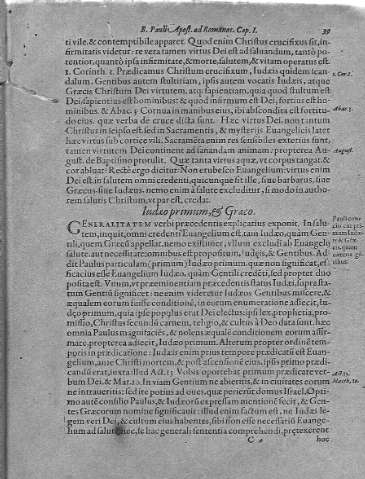 B. Pauli, Apost. ad Romanos. Cap. I. 39
ti vile, & contemptibile apparet. Quod enim Christus crucifixus sit, in-
firmitatis videtur: re vera tamen virtus Dei est ad saluandum, tantò po-
tentior, quantò ipsa infirmitate, & morte, salutem, & vitam operatus est.
1. Corinth. 1. Prædicamus Christum crucifixum, Iudæis quidem scan-
dalum, Gentibus autem stultitiam, ipsis autem vocatis Iudæis, atque
Græcis Christum Dei virtutem, ac sapientiam, quia quod stultum est
Dei, sapientius est hominibus: & quod infirmum est Dei, fortius est ho-
minibus. & Abac. 3. Cornua in manibus eius, ibi abscondita est fortitu-
do eius. quæ verba de cruce dicta sunt. Hæc virtus Dei non tantum
Christus in seipso est, sed in Sacramentis, & mysterijs Euangelicis latet
hæc virtus sub cortice vili. Sacramēta enim res sensiles exterius sunt,
tamen virtutem Dei continent ad sanandam animam: propterea Au-
gust. de Baptismo protulit. Quæ tanta virtus aquæ, vt corpus tangat, &
cor abluat? Rectè ergo dicitur: Non erubesco Euangelium: virtus enim
Dei est in salutem omni credenti, quicunque sit ille, siue barbarus, siue
Græcus, siue Iudæus. nemo enim à salute excluditur, si modo in autho-
rem salutis Christum, vt par est, credat.
Iudæo primum, & Græco.
GENERALITATEM verbi præcedentis explicatius exponit. In salu-
tem, inquit, omni credenti Euangelium est, tam Iudæo, quàm Gen-
tili, quem Græcū appellat. nemo existimet, vllum excludi ab Euangelij
salute. aut necessitate: omnibus est propositum, Iudæis, & Gentibus. Ad-
dit Paulus particulam (primum) Iudæo primum. quæ non significat, ef-
ficacius esse Euangelium Iudæo, quàm Gentili credēti, sed propter duo
posita est. Vnum, vt præeminentiam præcedētis status Iudæi, supra sta-
tum Gentiū significet: ne enim videretur Iudæos Gentibus miscere, &
æqualem eorum fuisse conditionē, in eorum enumeratione adiecit, Iu-
dæo primum, quia ipse populus erat Dei electus, ipsi lex, prophetia, pro-
missio, Christus secundū carnem, religio, & cultus à Deo data sunt. hæc
omnia Paulus magnifaciēs, & nolens æqualē conditionem eorum affir-
mare, propterea adiecit, Iudæo primum. Alterum propter ordinē tem-
poris in prædicatione. Iudæis enim prius tempore prædicatū est Euan-
gelium, ante Christi mortem, & post ascensionē eius, ipsis primo prædi-
candū erat, iuxta illud Act. 13. Vobis oportebat primum prædicare ver-
bum Dei, & Mat. 10. In viam Gentium ne abieritis, & in ciuitates eorum
ne intraueritis: sed ite potius ad oues, quæ perierūt domus Israel. Opti-
mo autē consilio Paulus, & Iudæorū expressam mentionē fecit, & Gen-
tes Græcorum nomine significauit: illud enim factum est, ne Iudæi le-
gem veri Dei, & cultum eius habentes, sibi non esse necessariū Euange-
lium ad salutē, nec se hac generali sententia comprehendi, prætexerent
C 4 hoc
1. Cor. 1.
Abac. 3.
August.
Act. 13.
Matth. 10.